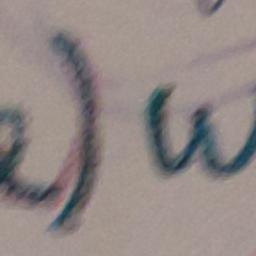 e) w